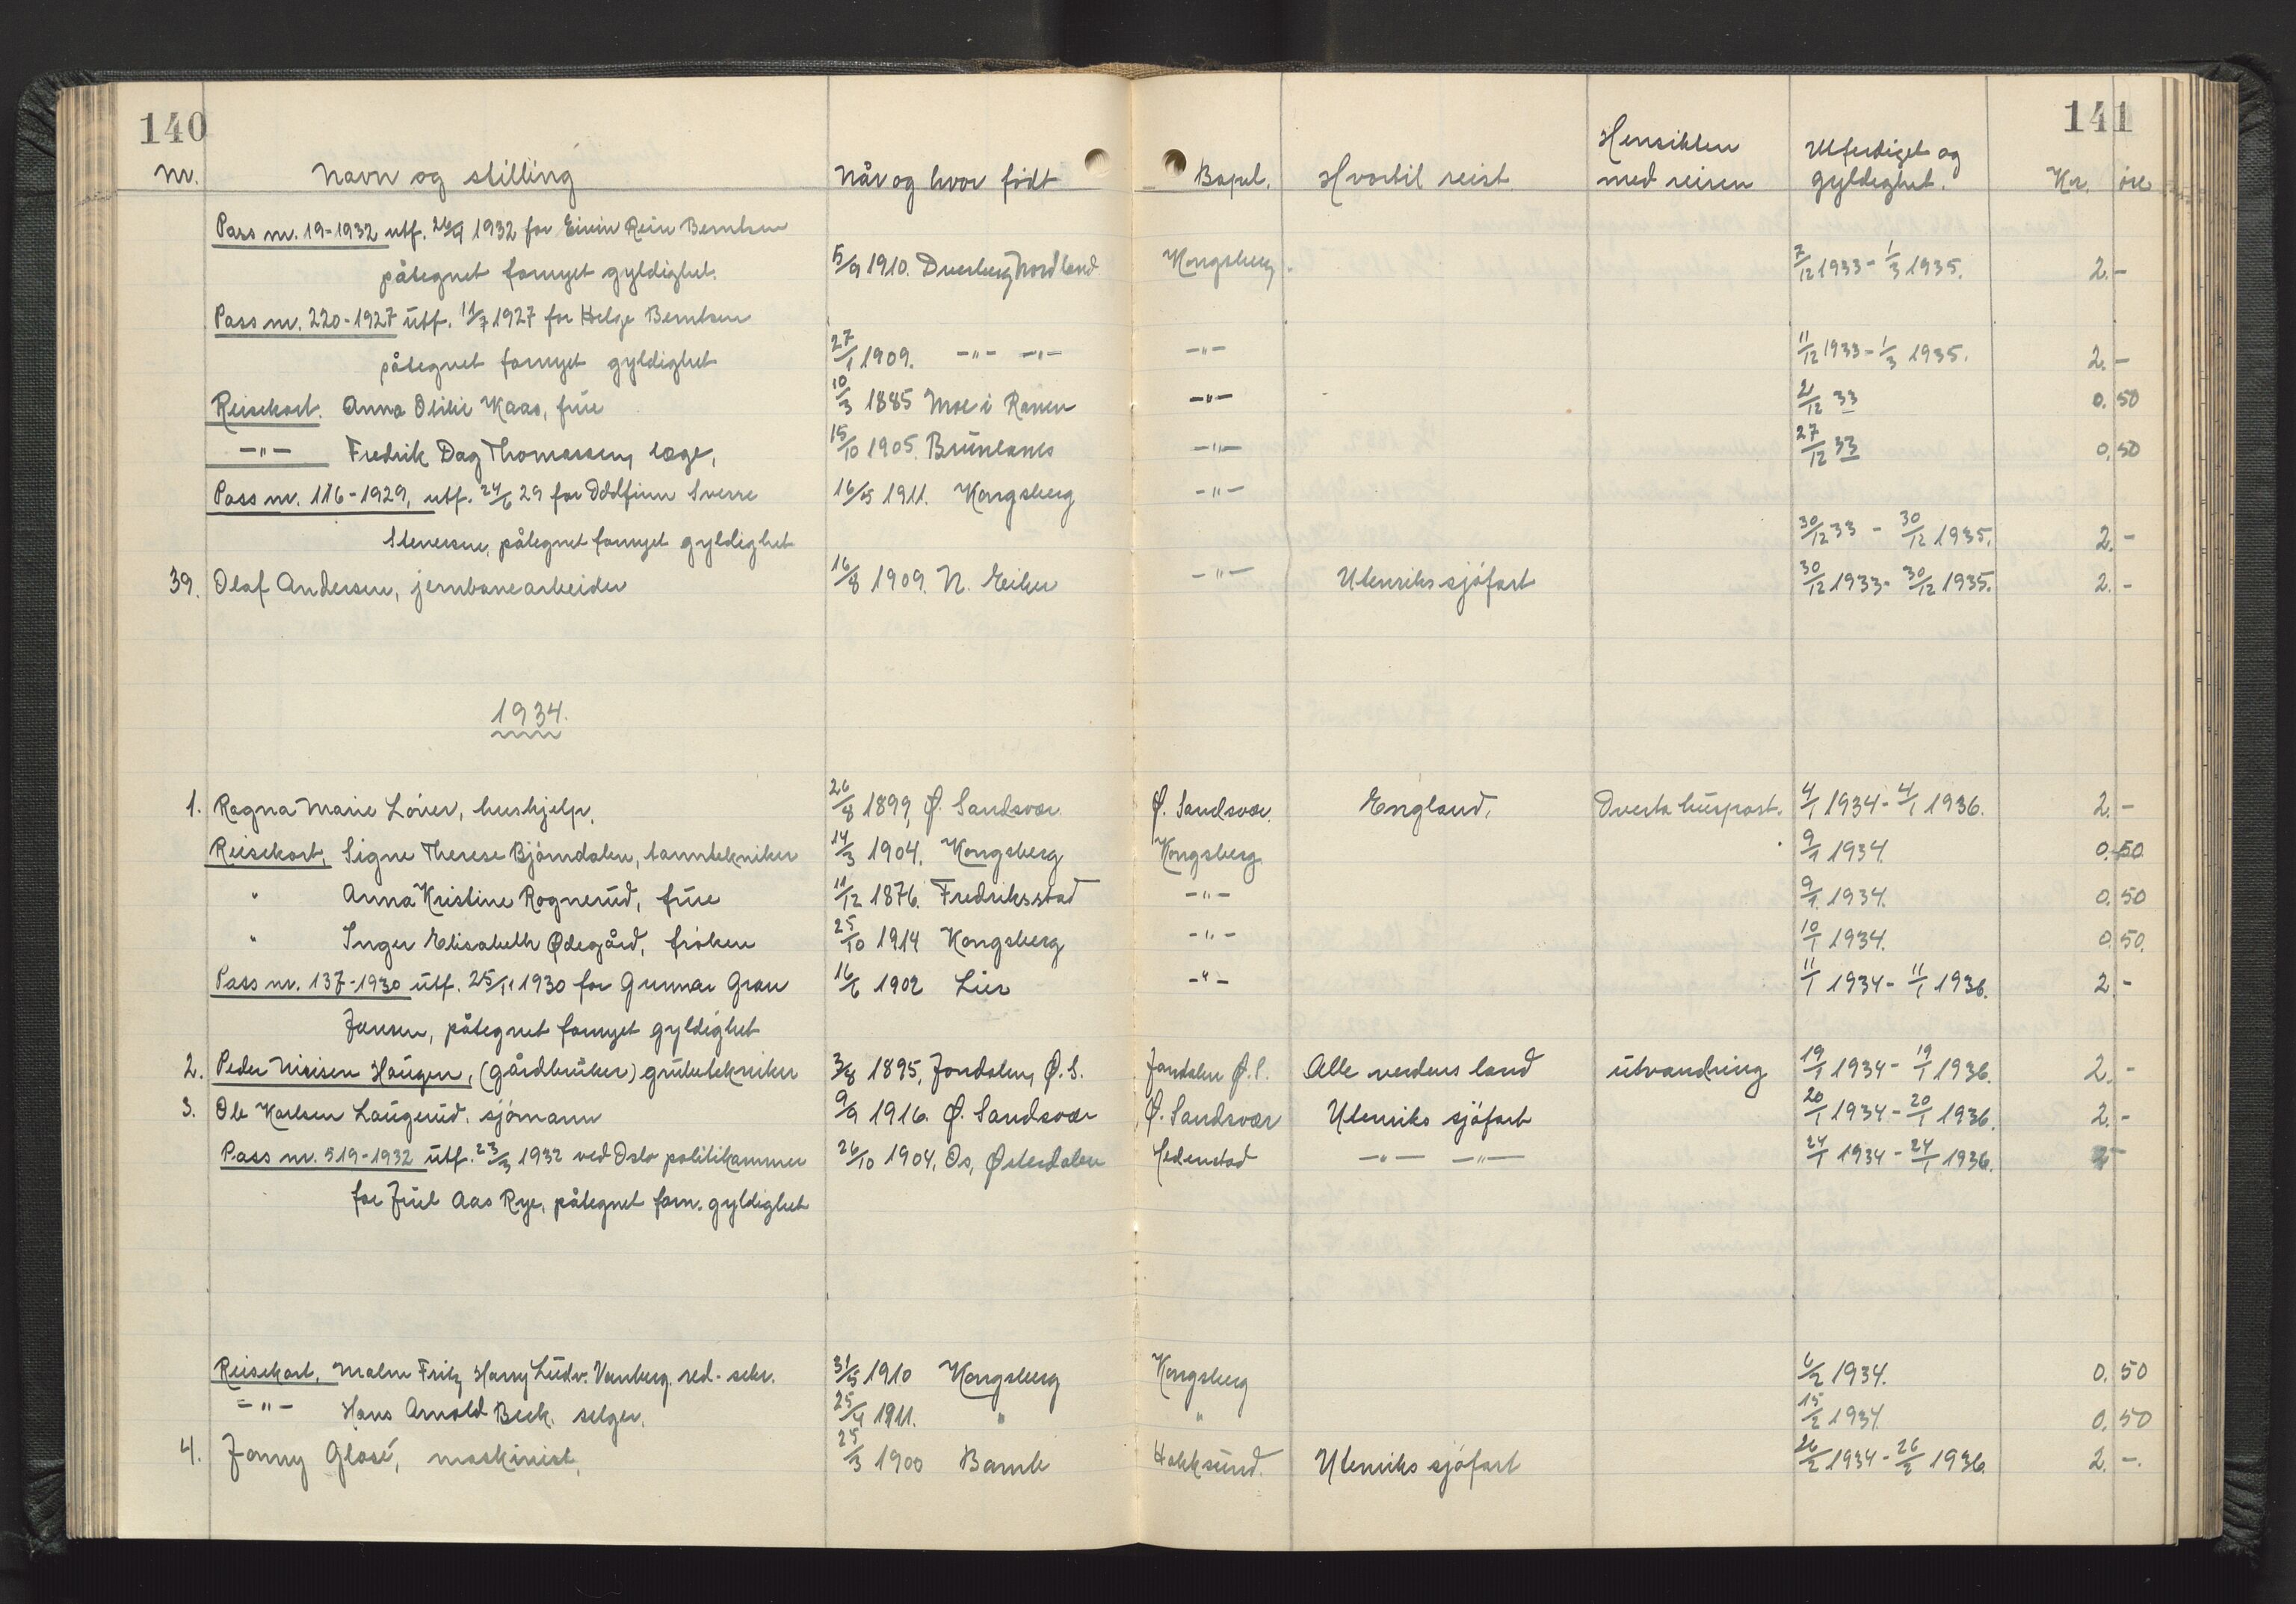 140 141
Nr. Navn og stilling Når og hvor født Bopel. Hvortil reist Hensikten med reisen Utferdiget og gyldighet. Kr. øre
Pass nr. 19-1932 utf. 26/4 1932 for Eivin Rein Berntsen
påtegnet fornyet gyldighet. 5/9 1910. Dverberg Nordland Kongsberg. 7/12 1933 - 1/3 1935. 2. -
Pass nr. 220-1927 utf. 11/7 1927 for Helge Berntsen
påtegnet fornyet gyldighet 27/1 1909. -"- -"- -"- 11/12 1933 - 1/3 1935. 2. -
Reisekort. Anna Otilie Kaas, frue 10/3 1885 Moe i Ranen -"- 2/12 33 0. 50
-"- Fredrik Dag Thomassen, læge, 15/10 1905. Brunlanes -"- 27/12 33 0. 50
Pass nr. 116-1929, utf. 24/6 29 for Oddfinn Sverre 16/5 1911. Kongsberg -"-
Stenersen, påtegnet fornyet gyldighet 30/12 33 - 30/12 1935. 2. -
39. Olaf Andersen, jernbanearbeider 16/8 1909. N. Eiker -"- Utenriks sjöfart 30/12 1933 - 30/12 1935. 2. -
1934.
1. Ragna Marie Löver, hushjelp. 26/8 1899, Ø. Sandsvær Ø. Sandsvær. England. Overta huspost. 4/1 1934 - 4/1 1936. 2. -
Reisekort, Signe Therese Björndalen, tanntekniker 14/3 1904. Kongsberg Kongsberg 9/1 1934. 0. 50
" Anna Kristine Rognerud, frue 11/12 1876. Fredriksstad -"- 9/1 1934. 0. 50
" Inger Elisabeth Ødegård, fröken 25/10 1914 Kongsberg -"- 10/1 1934. 0. 50.
Pass nr. 137-1930 utf. 25/11 1930 for Gunnar Grau 16/6 1902 Lier -"- 11/1 1934 - 11/1 1936. 2. -
Jensen, påtegnet fornyet gyldighet
2. Peder Nirisen Haugen, (gårdbruker) grubetekniker 3/8 1895, Jondalen, Ø.S. Jondalen Ø.S. Alle verdens land utvandring 19/1 1934 - 19/1 1936. 2. -
3. Ole Karlsen Laugerud. sjömann 9/9 1916. Ø. Sandsvær Ø. Sandsvær Utenriks sjöfart 20/1 1934 - 20/1 1936. 2. -
Pass nr. 519-1932 utf. 23/3 1932 ved Oslo politikammer 26/10 1904, Os, Østerdalen Hedenstad -"- -"- 24/1 1934 - 24/1 1936. 2 -
for Juel Aas Rye, påtegnet forn. gyldighet
Reisekort, Malm Fritz Harry Ludv. Vanberg. red.-sekr. 31/5 1910 Kongsberg Kongsberg 6/2 1934. 0. 50
-"- Hans Arnold Beck. selger. 25/4 1911. " " 15/2 1934. 0. 50
4. Jonny Glosé, maskinist, 25/3 1900 Bamle Hokksund. Utenriks sjöfart 26/2 1934 - 26/2 1936. 2. -.